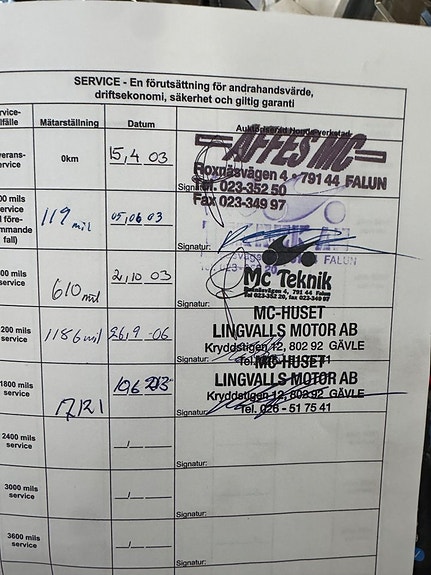 SERVICE - En förutsättning för andrahandsvärde,
driftsekonomi, säkerhet och giltig garanti
Mätarställning Datum Auktoriserad Hondaverkstad
0km 15,4 03
AFFES MC
Roxnäsvägen 4 • 791 44 FALUN
Signatur: Tel. 023-352 50
Fax 023-349 97
service 119 mil 05,06 03
fall) Signatur: FALUN
service 610 mil 2,10 03
Mc Teknik
Roxnäsvägen 4, 791 44 Falun
Tel 023-352 20, fax 023-349 97
MC-HUSET
200 mils 1186 mil 26,9 -06 LINGVALLS MOTOR AB
service Kryddstigen 12, 802 92 GÄVLE
MC-HUSET
1800 mils LINGVALLS MOTOR AB
service Kryddstigen 12, 802 92 GÄVLE
Signatur: Tel. 026 - 51 75 41
2400 mils
service
Signatur:
3000 mils
service
Signatur:
3600 mils
service
Signatur: